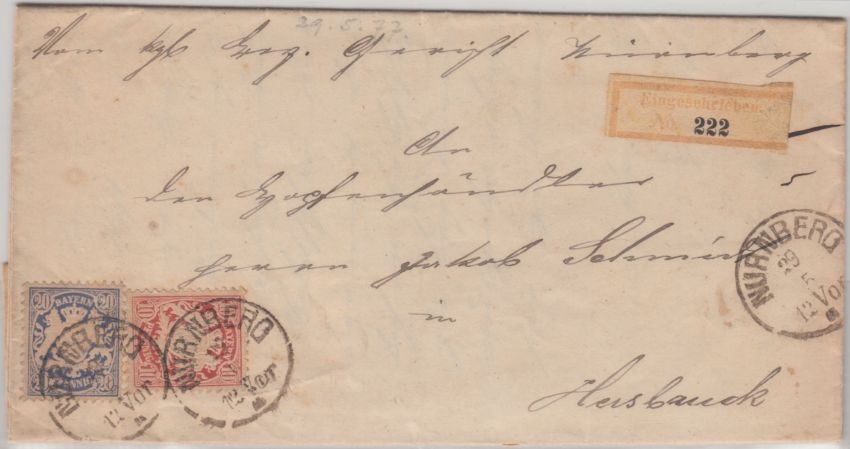 29. 5. 77.
Vom kgl Bez. Gericht Nürnberg
Eingeschrieben.
No. 222
An
den Hopfenhändler
5
Herrn Jakob
in
Hersbruck
NÜRNBERG
29
5
12 Vor
20 BAYERN 20
PFENNIG
NÜRNBERG
12 Vor
10
10
NÜRNBERG
12 Vor